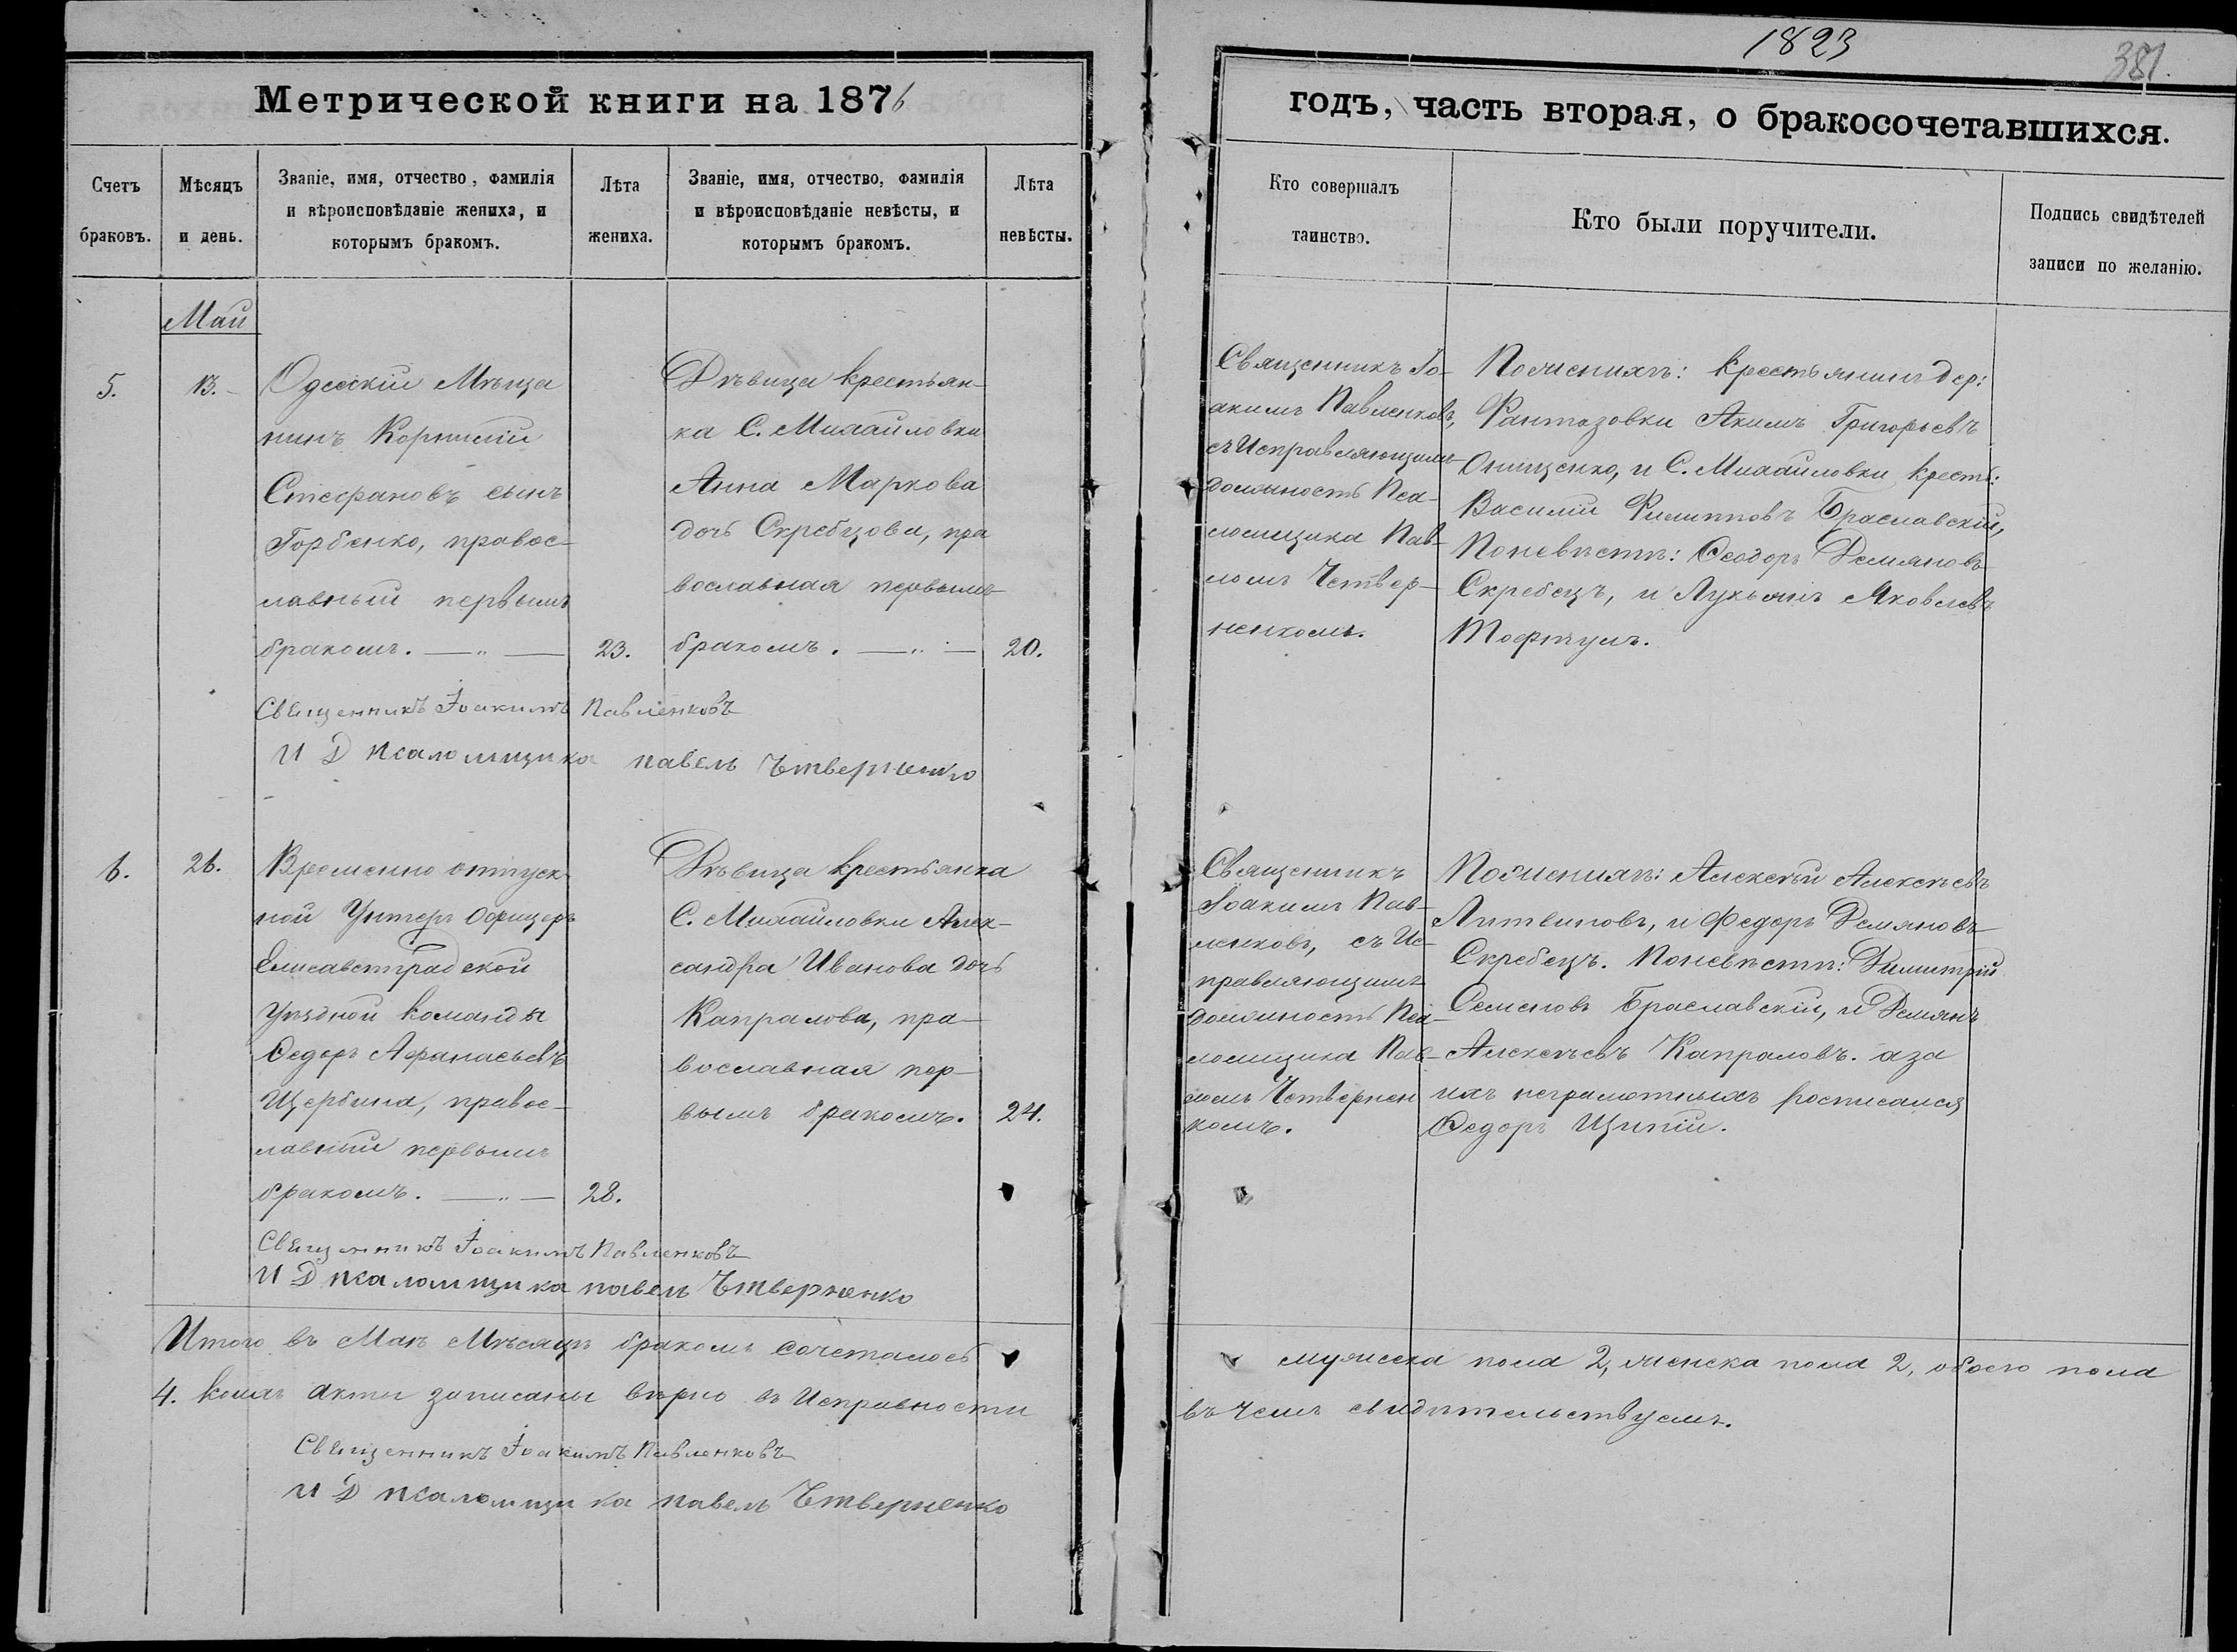 1823
381.
Метрической книги на 1876
годъ, часть вторая, о бракосочетавшихся.
Счетъ браковъ.
Мѣсяцъ и день.
Званіе, имя, отчество, фамилія
и вѣроисповѣданіе жениха, и
которымъ бракомъ.
Лѣта жениха.
Званіе, имя, отчество, фамилія
и вѣроисповѣданіе невѣсты, и
которымъ бракомъ.
Лѣта невѣсты.
Кто совершалъ
таинство.
Кто были поручители.
Подпись свидѣтелей
записи по желанію.
Май
5.
13.
Одесскій Мѣща
нинъ Корнилій
Стефановъ сынъ
Горбенко, правос-
лавный первымъ
бракомъ.
23.
Дѣвица крестьян-
ка С. Михайловки
Анна Маркова
дочь Скребцова, пра
вославная первымъ
бракомъ.
20.
Священникъ Іо-
акимъ Павленковъ,
съ Исправляющимъ
должность Пса-
ломщика Пав-
ломъ Четвер-
ненкомъ.
Поженихъ: крестьянинъ дер:
Фантазовки Акимъ Григорьевъ
Онищенко, и С. Михайловки крест:
Василій Филипповъ Браславскій,
Поневѣстъ: Ѳеодоръ Демяновъ
Скребецъ, и Лукьянъ Яковлевъ
Тофтулъ.
Священникъ Іоакимъ Павленковъ
И Д псаломщика павелъ Чтверненко
6.
26.
Временно отпуск
ной Унтеръ Офицеръ
Елисаветградской
Уѣздной команды
Ѳедоръ Афанасьевъ
Щербина, правос-
лавный первымъ
бракомъ.
28.
Дѣвица крестьянка
С. Михайловки Алек-
сандра Иванова дочь
Капралова, пра-
вославная пер-
вымъ бракомъ.
24.
Священникъ
Іоакимъ Пав-
ленковъ, съ Ис-
правляющимъ
должность Пса-
ломщика Пав-
ломъ Четвернен
комъ.
Поженихъ: Алексѣй Алексѣевъ
Литвиновъ, и Федоръ Демяновъ
Скребецъ. Поневѣстъ: Димитрій
Семеновъ Браславскій, и Демянъ
Алексѣевъ Капраловъ. а за
ихъ неграмотныхъ росписался
Ѳедоръ Щипій.
Священникъ Іоакимъ Павленковъ
И Д псаломщика павелъ Чтверненко
Итого въ Маѣ Мѣсяцѣ бракомъ сочеталось
мужеска пола 2, женска пола 2, обоего пола
4. коихъ акты записаны вѣрно въ Исправности
въ чемъ свидѣтельствуемъ.
Священникъ Іоакимъ Павленковъ
И Д псаломщика павелъ Чтверненко